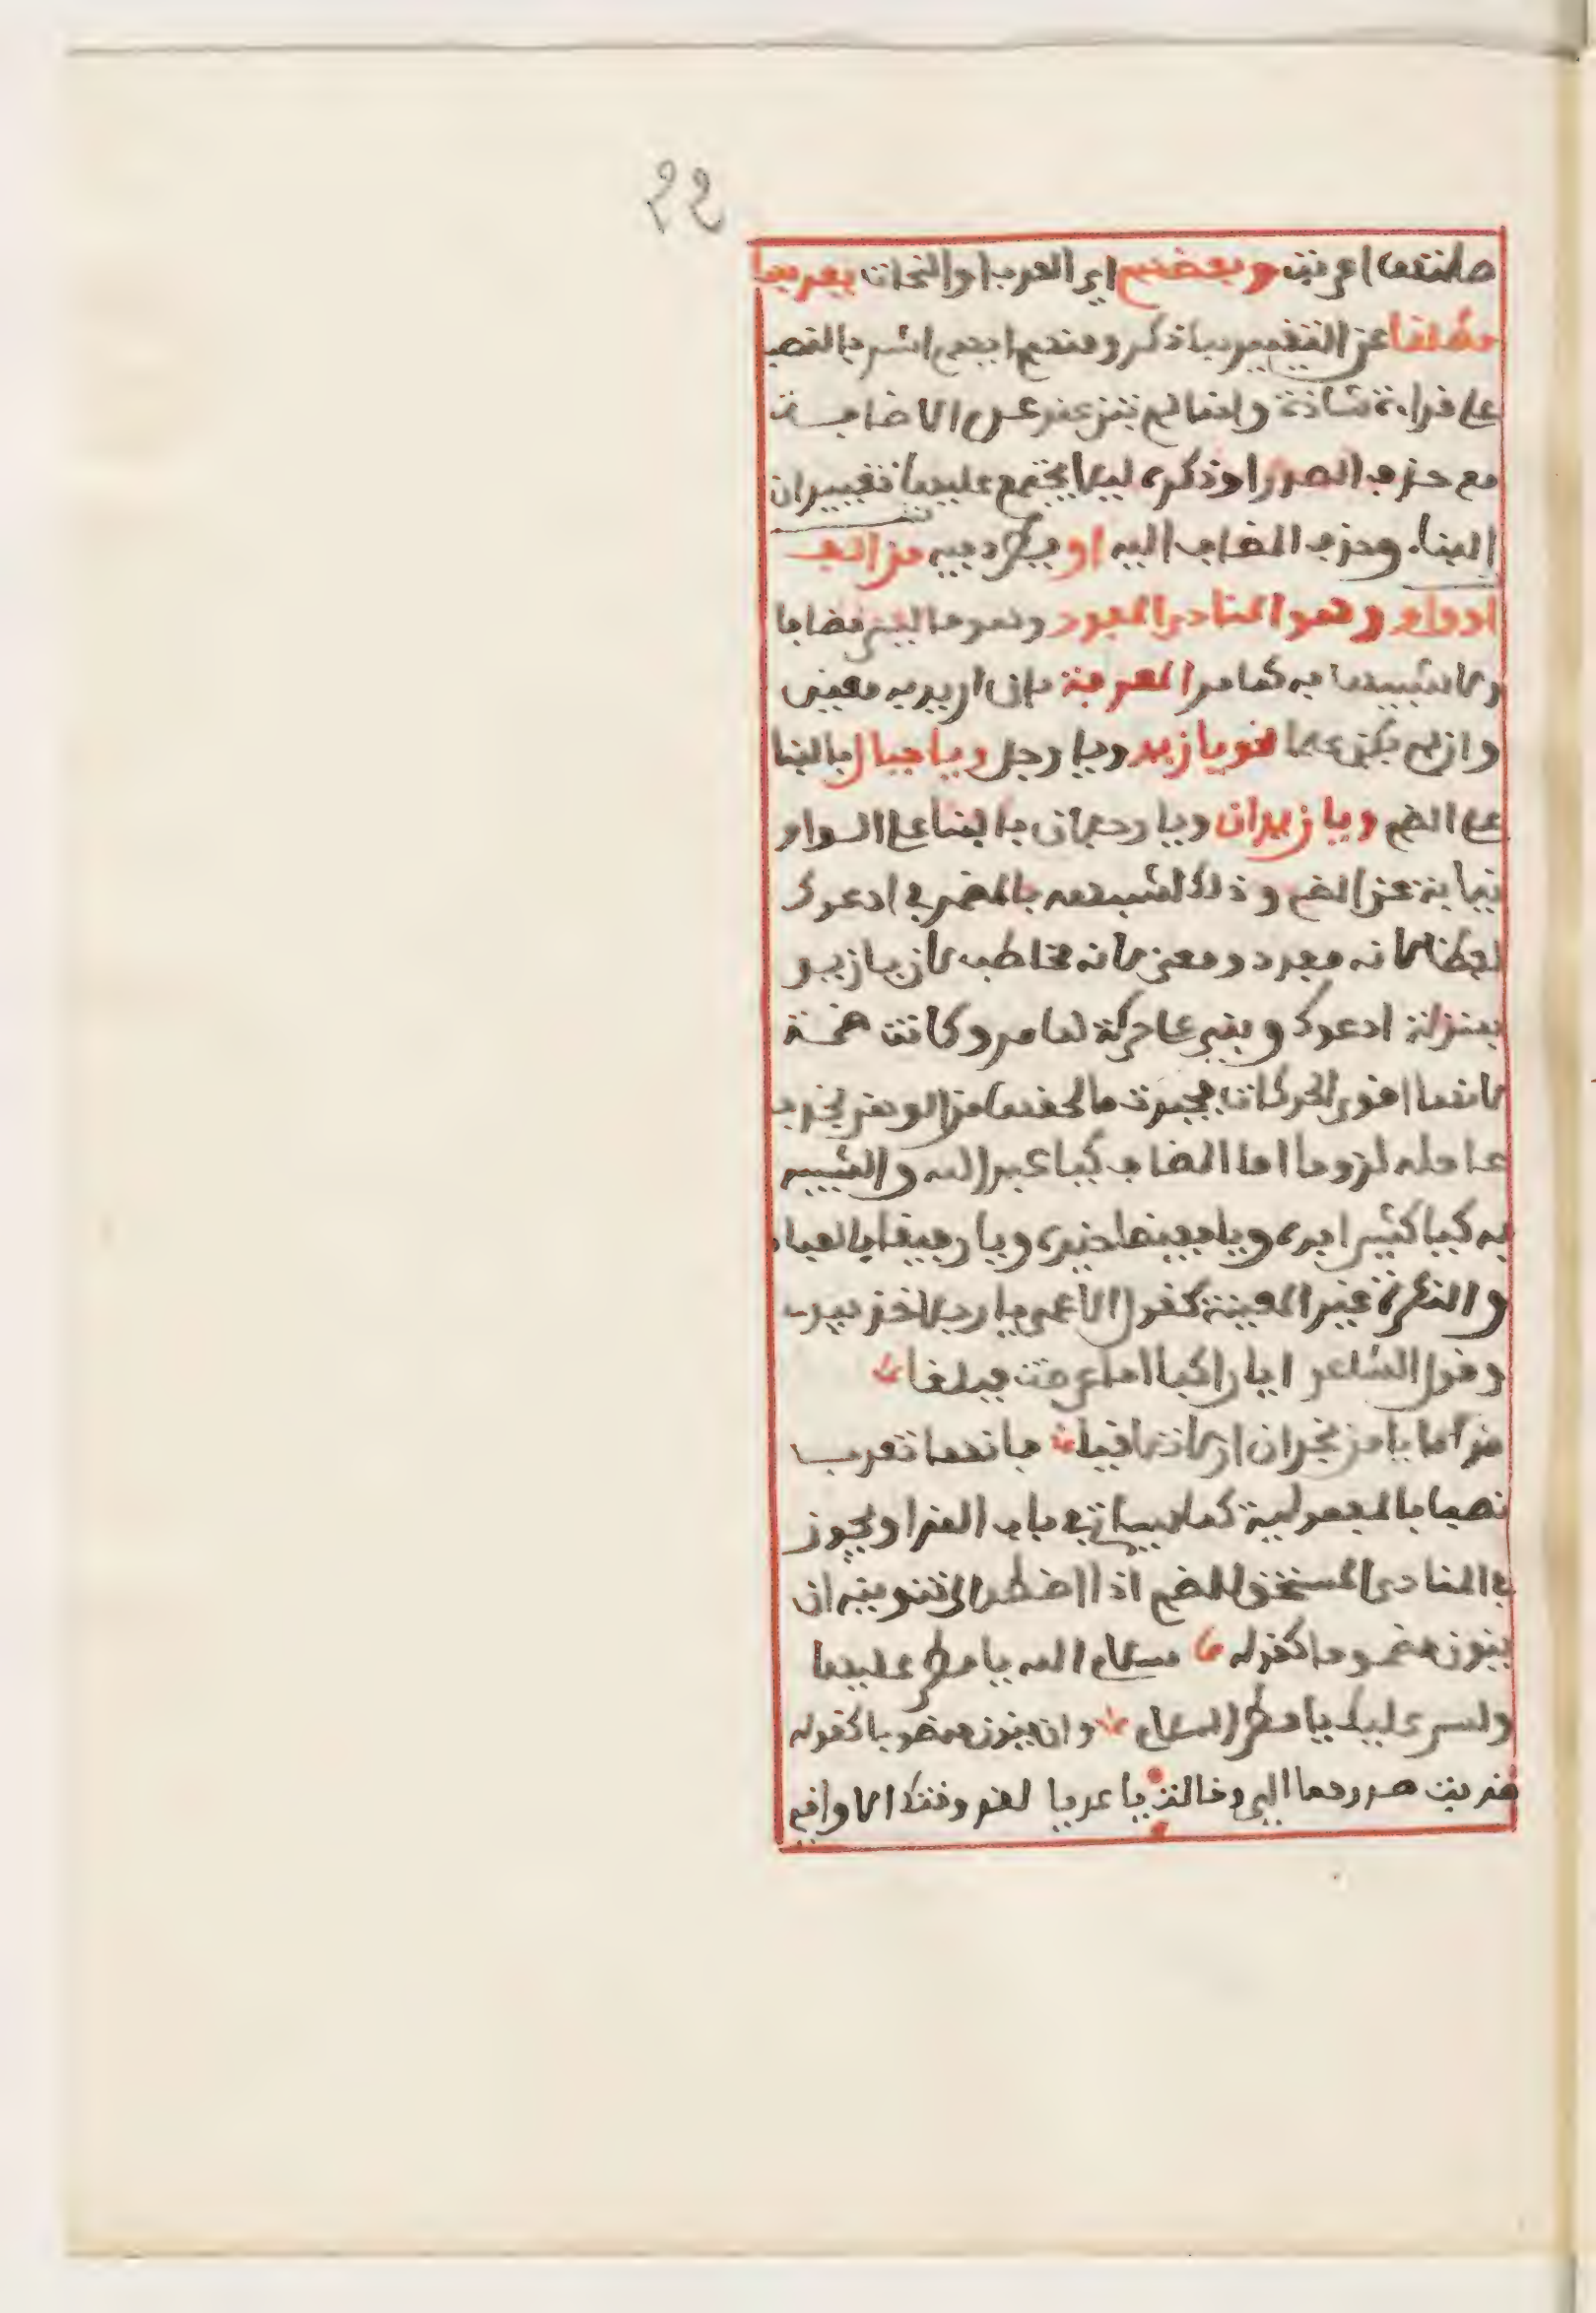 22
صلتها اعربت وبعضهم اي العرب او النحات يعربها
مطلقا عن التقييد بما ذكر ومنهم ايهم اشد بالنصب
على قراءة شاذة وانما لم تبن عند عدم الاضافة
مع حذف الصدر او ذكره ليلا يجتمع عليها تغييران
البناء وحذف المضاف اليه او من الف
او واو وهو المنادى المفرد وهو ما ليس مضافا
ولا شبيها به كما مر المعرفة بان اريد به معين
وان لم يكن علما نحو يا زيد ويا رجل ويا جبال بالبنا
على الضم ويا زيدان ويا رجلان بالبنا على الـواو
نيابة عن الضم و ذلك لشبهه بالمضمر في ادعوك
لفظا لانه مفرد ومعنى لانه مخاطب لان يا زيد
بمنزلة ادعوك وبني على حركة لما مر وكانت ضمة
لانها اقوى الحركات فجبرت ما لحقها من الوهن بحذف
عامله لزوما اما المضاف كيا عبد الله والشبيه
به كيا كثيرا بره ويا مفيضا خيره ويا رفيقا بالعباد
والنكرة غير المعينة كقول الاعمى يا رجلا خذ بيدي
وقول الشاعر ايا راكبا اما عرضت فبلغا
نداماي من نجران ان لا تلاقيا فانها تعرب
نصبا بالمفعولية كما سياتي في باب الندا ويجوز
في المنادى المستحق للضم اذا اضطر الى تنوينه ان
ينون مضموما كقوله سلام الله يا مطر عليها
وليس عليك يا مطر السلام وان ينون منصوبا كقوله
ضربت صدرها الي وقالت يا عديا لقد وقتك الاواقي